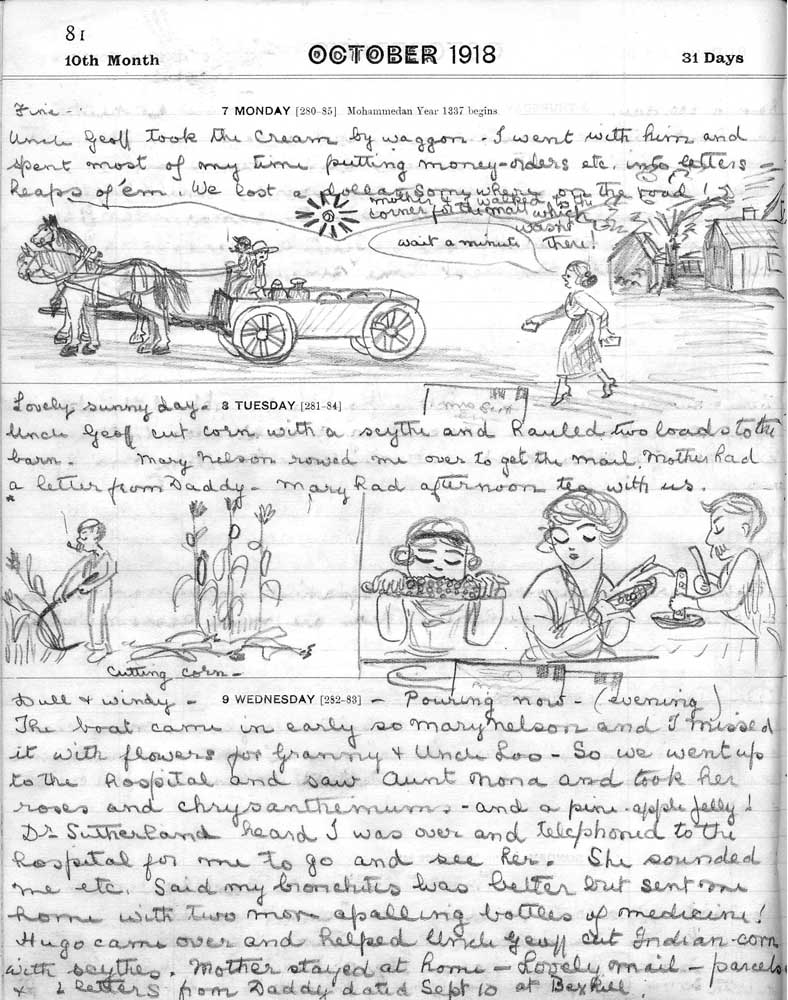 81
10th Month
OCTOBER 1918
31 Days
Fine -
7 MONDAY [280-85] Mohammedan Year 1337 begins
Uncle Geoff took the cream by waggon - I went with him and
spent most of my time putting money-orders etc. into letters -
heaps of 'em. We lost a dollar somewhere on the road!
mother & I walked to the
corner for the mail which
wasn't
there!
wait a minute
Lovely sunny day -
8 TUESDAY [281-84]
Uncle Geoff cut corn with a scythe and hauled two loads to the
barn - Mary Nelson rowed me over to get the mail. Mother had
a letter from Daddy - Mary had afternoon tea with us.
cutting corn -
Dull & windy -
9 WEDNESDAY [282-83] - Pouring now - (evening)
The boat came in early so Mary Nelson and I missed
it with flowers for Granny & Uncle Loo - So we went up
to the hospital and saw Aunt Mona and took her
roses and chrysanthemums - and a pine-apple jelly!
Dr Sutherland heard I was over and telephoned to the
hospital for me to go and see her. She sounded
me etc. Said my bronchites was better but sent me
home with two more apalling bottles of medicine!
Hugo came over and helped Uncle Geoff cut Indian-corn
with scythes. Mother stayed at home - Lovely mail - parcels
& 2 letters from Daddy dated Sept 10 at Bexhill